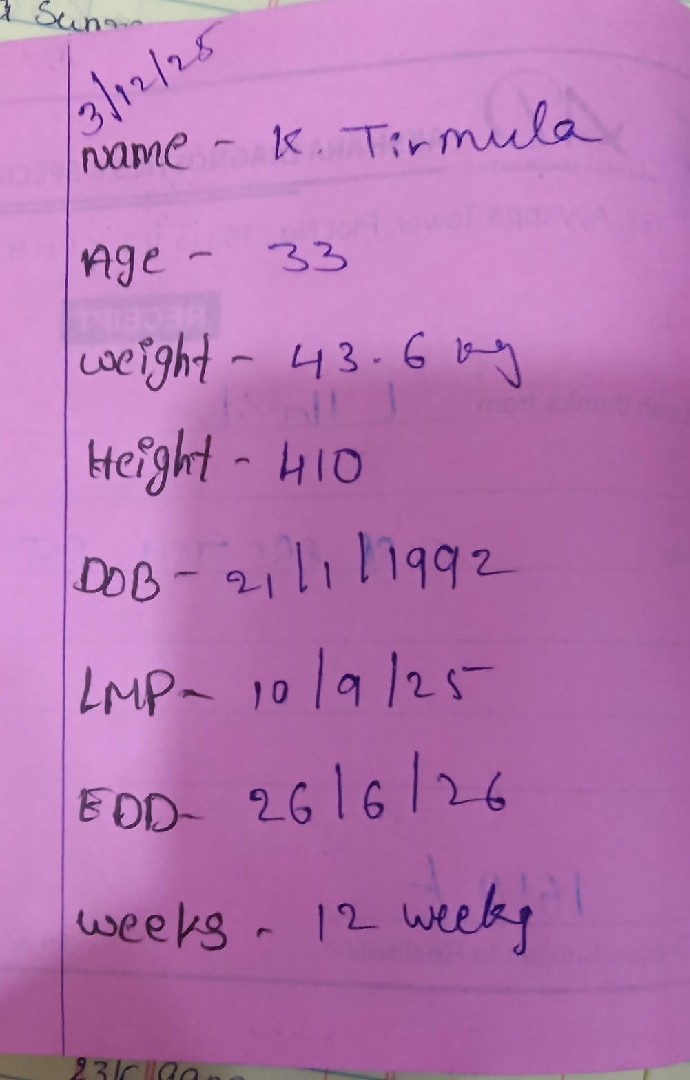 3/12/25
Name - K. Tirmula
Age - 33
weight - 43.6 kg
Height - 410
DOB - 21/1/1992
LMP - 10/9/25
EDD - 26/6/26
weeks - 12 weeks